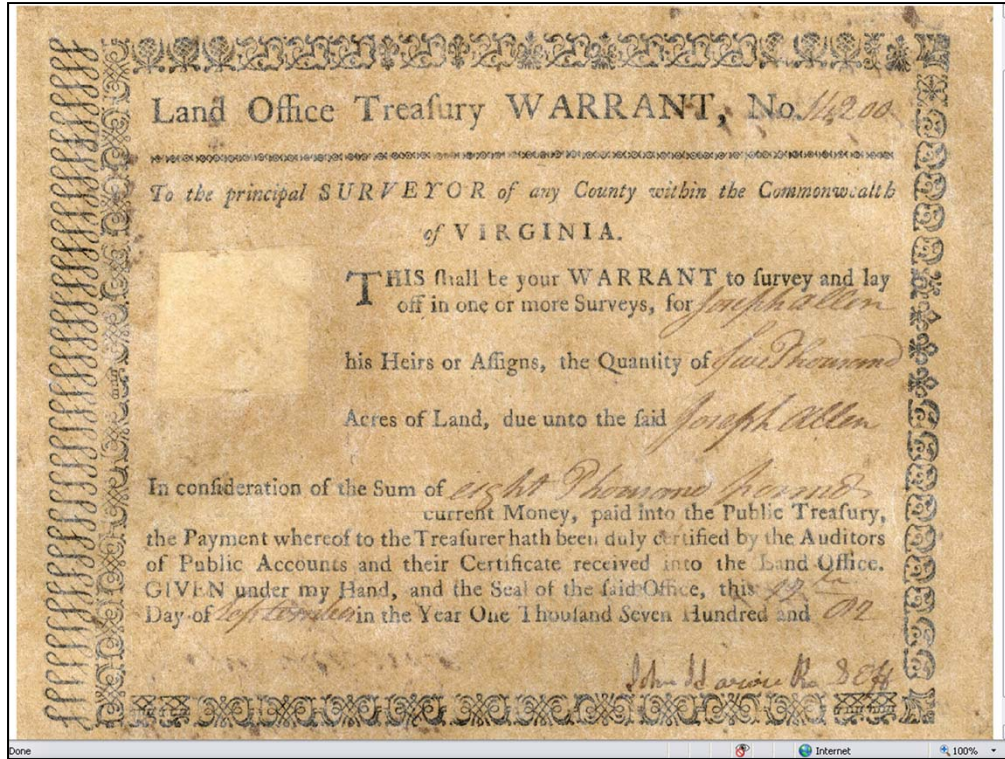 Land Office Treaſury WARRANT, No. 14200
To the principal SURVEYOR of any County within the Commonwealth
of VIRGINIA.
THIS ſhall be your WARRANT to ſurvey and lay
off in one or more Surveys, for Joseph Allen
his Heirs or Aſſigns, the Quantity of five Thousand
Acres of Land, due unto the ſaid Joseph Allen
In conſideration of the Sum of eight Thousand pounds
current Money, paid into the Public Treaſury,
the Payment whereof to the Treaſurer hath been duly certified by the Auditors
of Public Accounts and their Certificate received into the Land Office.
GIVEN under my Hand, and the Seal of the ſaid Office, this
Day of September in the Year One Thouſand Seven Hundred and 82
John Harvie
Done
Internet
100%